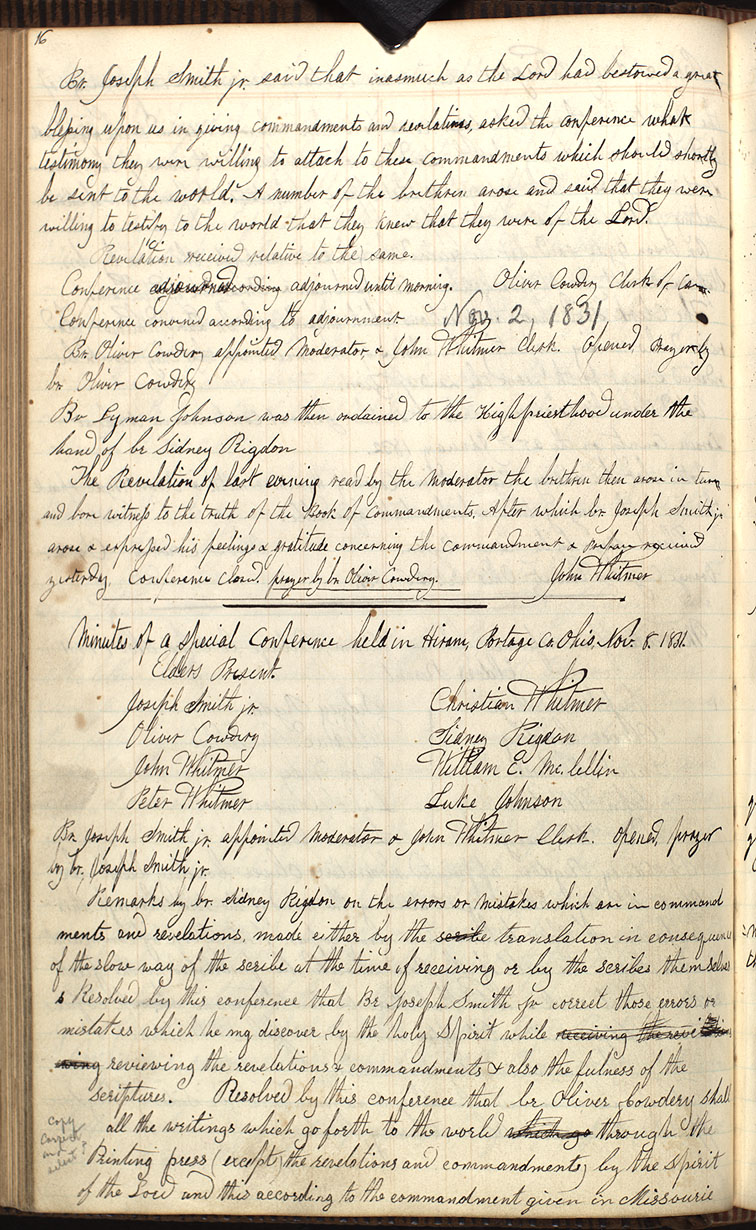 16
Br. Joseph Smith jr. said that inasmuch as the Lord had bestowed a great
blessing upon us in giving commandments and revelations, asked the conference what
testimony they were willing to attach to these commandments which should shortly
be sent to the world. A number of the brethren arose and said that they were
willing to testify to the world that they knew that they were of the Lord.
Revelation received relative to the same.
Conference adjourned according adjourned until morning. Oliver Cowdery Clerk of Con.
Conference convened according to adjournment. Nov. 2, 1831
Br. Oliver Cowdery appointed Moderator & John Whitmer Clerk. Opened, prayer by
br. Oliver Cowdery
Br Lyman Johnson was then ordained to the Highpriesthood under the
hand of br Sidney Rigdon
The Revelation of last evening read by the Moderator the brethren then arose in turn
and bore witness to the truth of the Book of Commandments. After which br. Joseph Smith jr
arose & expressed his feelings & gratitude concerning the commandment & Preface received
yesterday. Conference closed. prayer by br. Oliver Cowdery. John Whitmer
Minutes of a special Conference held in Hiram, Portage Co. Ohio, Nov. 8. 1831.
Elders Present.
Joseph Smith jr. Christian Whitmer
Oliver Cowdery Sidney Rigdon
John Whitmer William E. Mc.lellin
Peter Whitmer Luke Johnson
Br. Joseph Smith jr. appointed Moderator & John Whitmer Clerk. Opened, prayer
by br. Joseph Smith jr.
Remarks by br. Sidney Rigdon on the errors or mistakes which are in command
ments and revelations, made either by the scribe translation in consequence
of the slow way of the scribe at the time of receiving or by the scribes themselves
s Resolved by this conference that Br Joseph Smith jr correct those errors or
mistakes which he may discover by the holy Spirit while receiving the
reviewing the revelations & commandments & also the fulness of the
scriptures. Resolved by this conference that br Oliver Cowdery shall
copy correct and select all the writings which go forth to the world which go through the
Printing press (except the revelations and commandments) by the Spirit
of the Lord and this according to the commandment given in Missourie